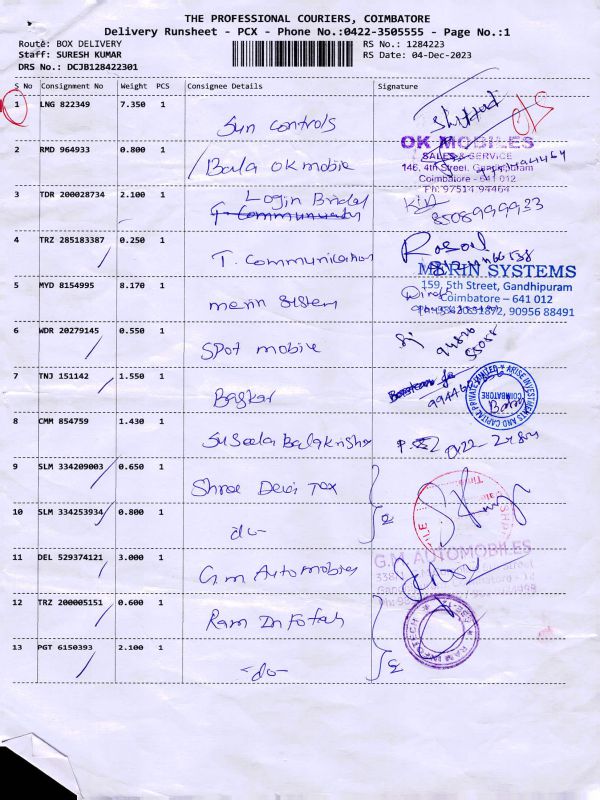 THE PROFESSIONAL COURIERS, COIMBATORE
Delivery Runsheet - PCX - Phone No.:0422-3505555 - Page No.:1
Route: BOX DELIVERY
Staff: SURESH KUMAR
DRS No.: DCJB128422301
RS No.: 1284223
RS Date: 04-Dec-2023
S No Consignment No Weight PCS Consignee Details Signature
1 LNG 822349 7.350 1 Sun Controls
2 RMD 964933 0.800 1 Bala OK mobile
OK MOBILES
SALES & SERVICE
146, 4th Street, Gandhipuram
Coimbatore - 641 012
Ph: 97514 94464
3 TDR 200028734 2.100 1 Login Bridal
8508999933
4 TRZ 285183387 0.250 1 T. Communication
5 MYD 8154995 8.170 1 merin system
MERIN SYSTEMS
159, 5th Street, Gandhipuram
Coimbatore – 641 012
90956 88491
6 WDR 20279145 0.550 1 Spot mobile
94876
55058
7 TNJ 151142 1.550 1 Baskar
ARISE INVESTMENTS AND CAPITAL PRIVATE LIMITED
COIMBATORE
8 CMM 854759 1.430 1 Suseela Balakrishn
9 SLM 334209003 0.650 1 Shree Devi Tex
10 SLM 334253934 0.800 1 -do-
11 DEL 529374121 3.000 1 G.m Automobiles
G.M AUTOMOBILES
12 TRZ 200005151 0.600 1 Ram Infotah
RAM INFOTECH
13 PGT 6150393 2.100 1 -do-